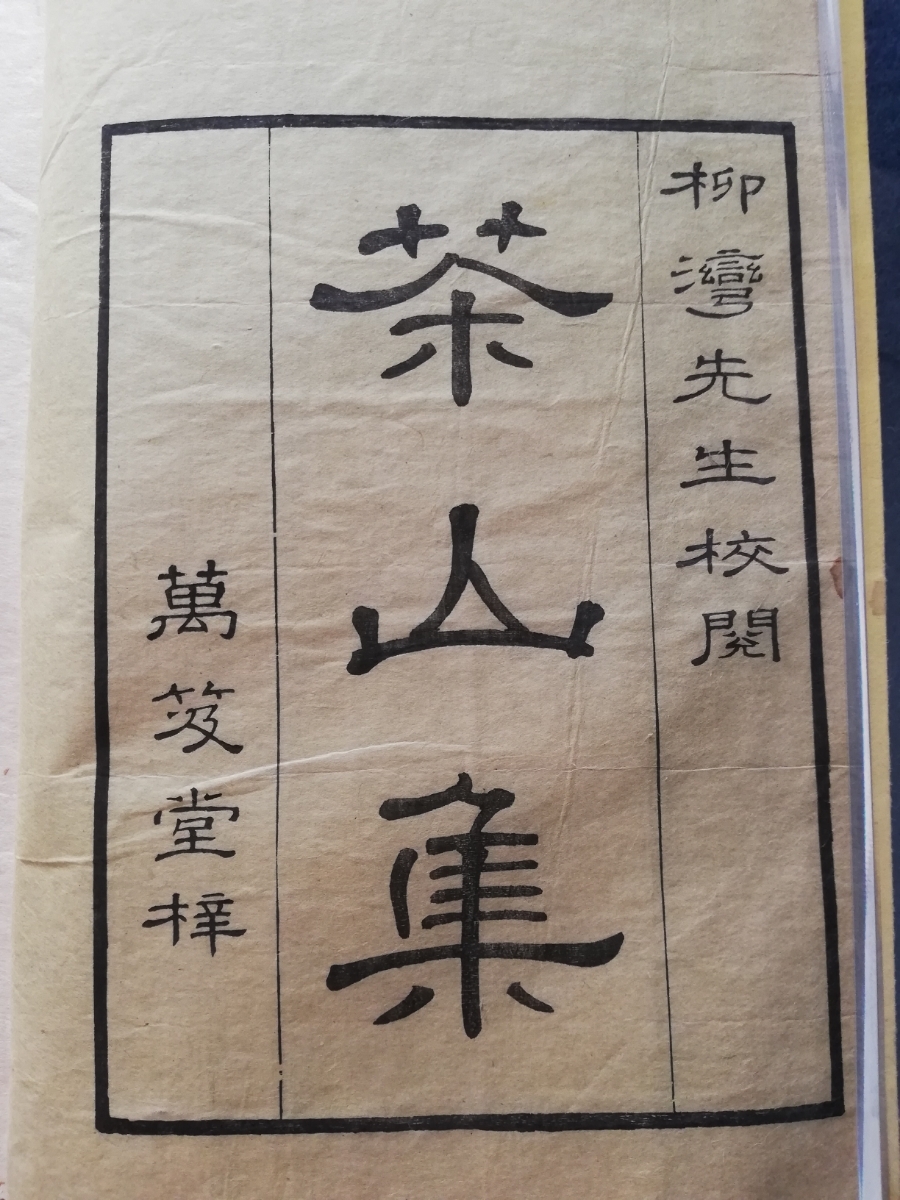 柳灣先生校閱
茶山集
萬笈堂梓